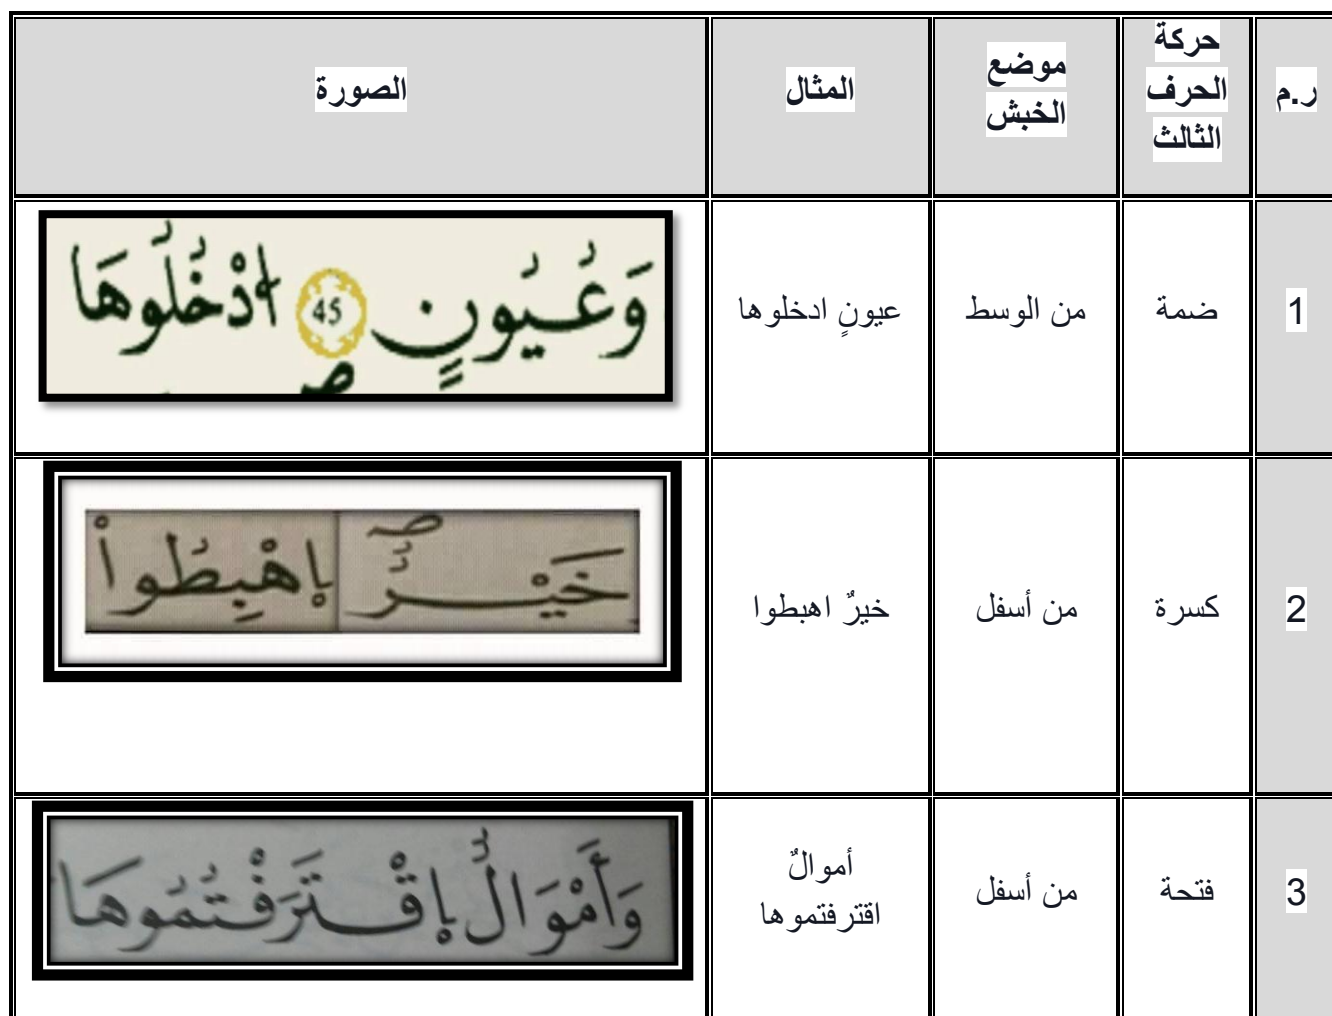 ر.م
حركة
الحرف
الثالث
موضع
الخبش
المثال
الصورة
1
ضمة
من الوسط
عيونٍ ادخلوها
وَعُيُونٍ 45 ادْخُلُوهَا
2
كسرة
من أسفل
خيرٌ اهبطوا
خَيْرٌ اِهْبِطُواْ
3
فتحة
من أسفل
أموالٌ
اقترفتموها
وَأَمْوَالٌ اِقْتَرَفْتُمُوهَا